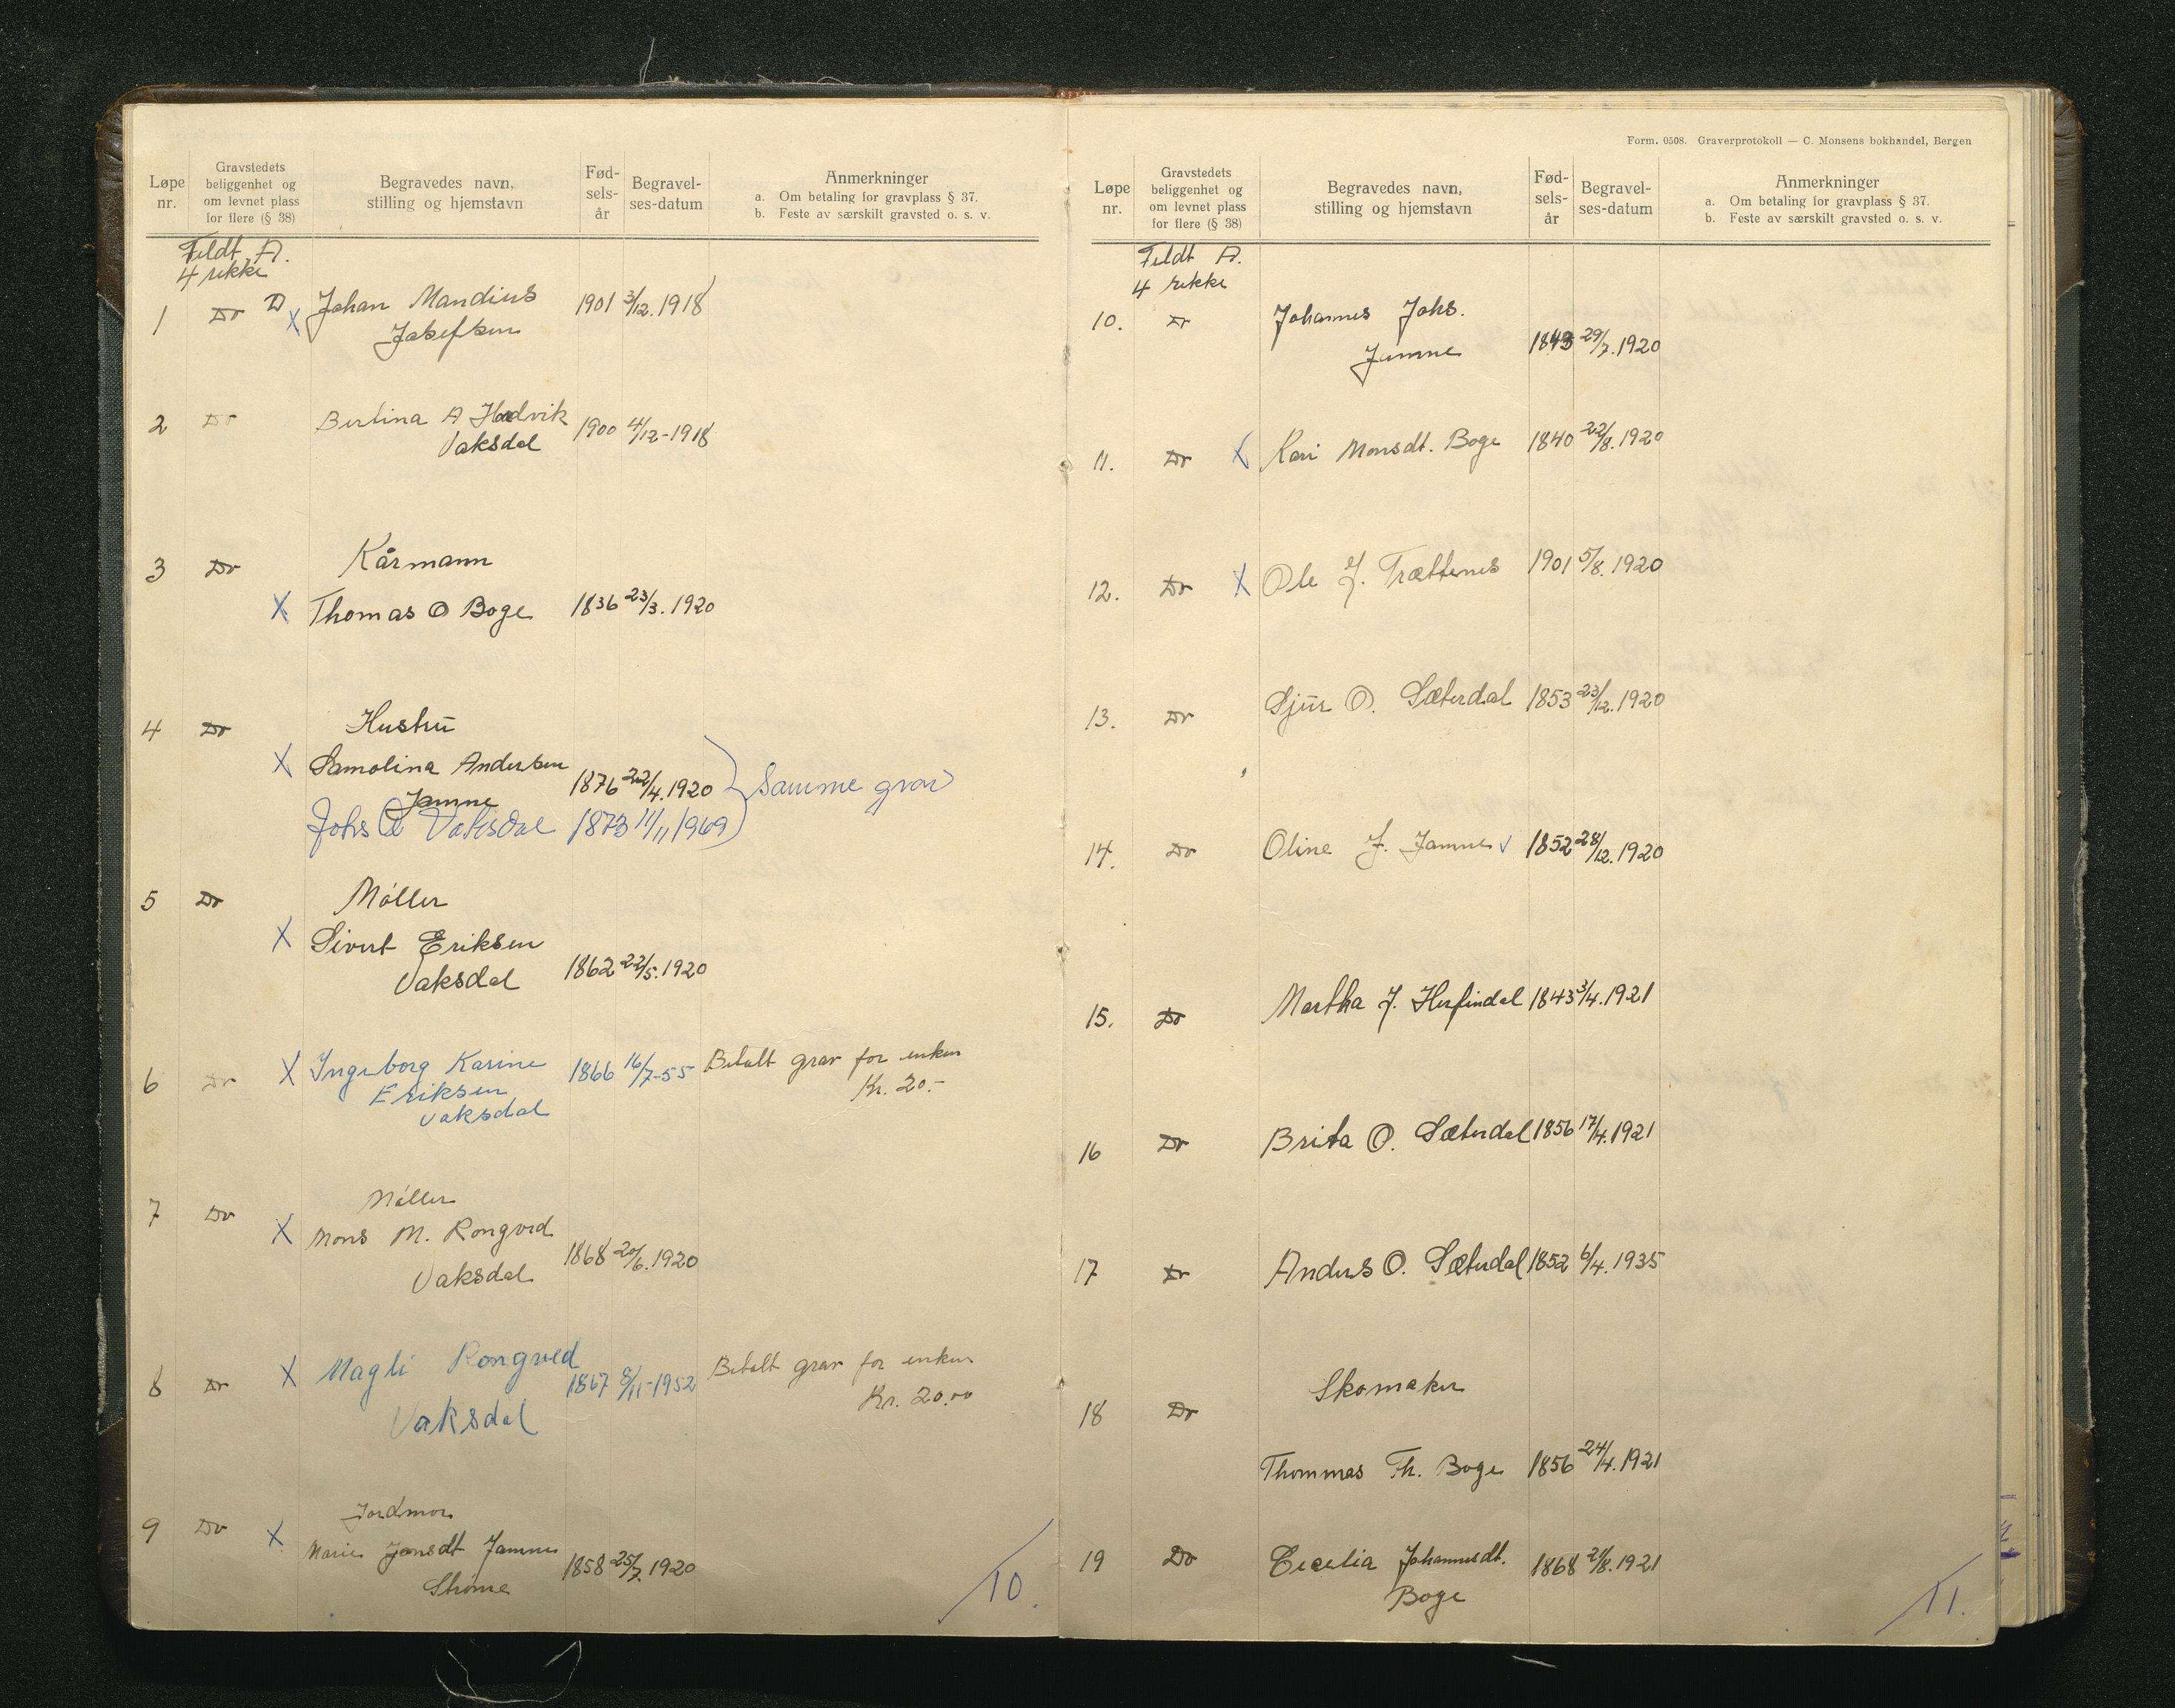 Løpe nr.
Gravstedets beliggenhet og om levnet plass for flere (§ 38)
Begravedes navn, stilling og hjemstavn
Fød-sels-år
Begravel-ses-datum
Anmerkninger
a. Om betaling for gravplass § 37.
b. Feste av særskilt gravsted o. s. v.
Feldt A.
4 rekke
1 Do D X Johan Mandius 1901 3/12. 1918
Josefsen
2 Do Bertina A Hadvik
Vaksdal 1900 4/12-1918
3 Do Kårmann
X Thomas O Boge 1836 23/3. 1920
4 Do Hustru
X Samolina Andersen
Jamne 1876 22/4. 1920 } Samme grav
Johs A Vaksdal 1873 11/11 1949
5 Do Møller
X Sivert Eriksen
Vaksdal 1862 22/5. 1920
6 Do X Ingeborg Karine 1866 16/7-55 Betalt grav for enken
Eriksen Kr. 20.-
Vaksdal
7 Do Møller
X Mons M. Rongved
Vaksdal 1868 20/6. 1920
8 Do X Magli Rongved 1867 8/11-1952 Betalt grav for enken
Vaksdal Kr. 20.00
9 Do Jordmor
X Marie Jonsdt Jamne
Skrime 1858 25/7. 1920
10.
Form. 0508. Graverprotokoll — C. Monsens bokhandel, Bergen
Løpe nr.
Gravstedets beliggenhet og om levnet plass for flere (§ 38)
Begravedes navn, stilling og hjemstavn
Fød-sels-år
Begravel-ses-datum
Anmerkninger
a. Om betaling for gravplass § 37.
b. Feste av særskilt gravsted o. s. v.
Feldt A.
4 rekke
10. Do Johannes Johs.
Jamne 1843 29/7. 1920
11. Do X Kari Monsdt. Boge 1840 22/8. 1920
12. Do X Ole J. Trættenes 1901 5/8. 1920
13. Do Sjur O. Sæterdal 1853 23/12. 1920
14. Do Oline J. Jamne √ 1852 28/12. 1920
15. Do Martha J. Herfindal 1843 3/4. 1921
16 Do Brita O. Sæterdal 1856 17/4. 1921
17 Do Anders O. Sæterdal 1852 6/4. 1935
18 Do Skomaker
Thommas Th. Boge 1856 24/4. 1921
19 Do Cecelia Johannesdt.
Boge 1868 21/8. 1921
11.